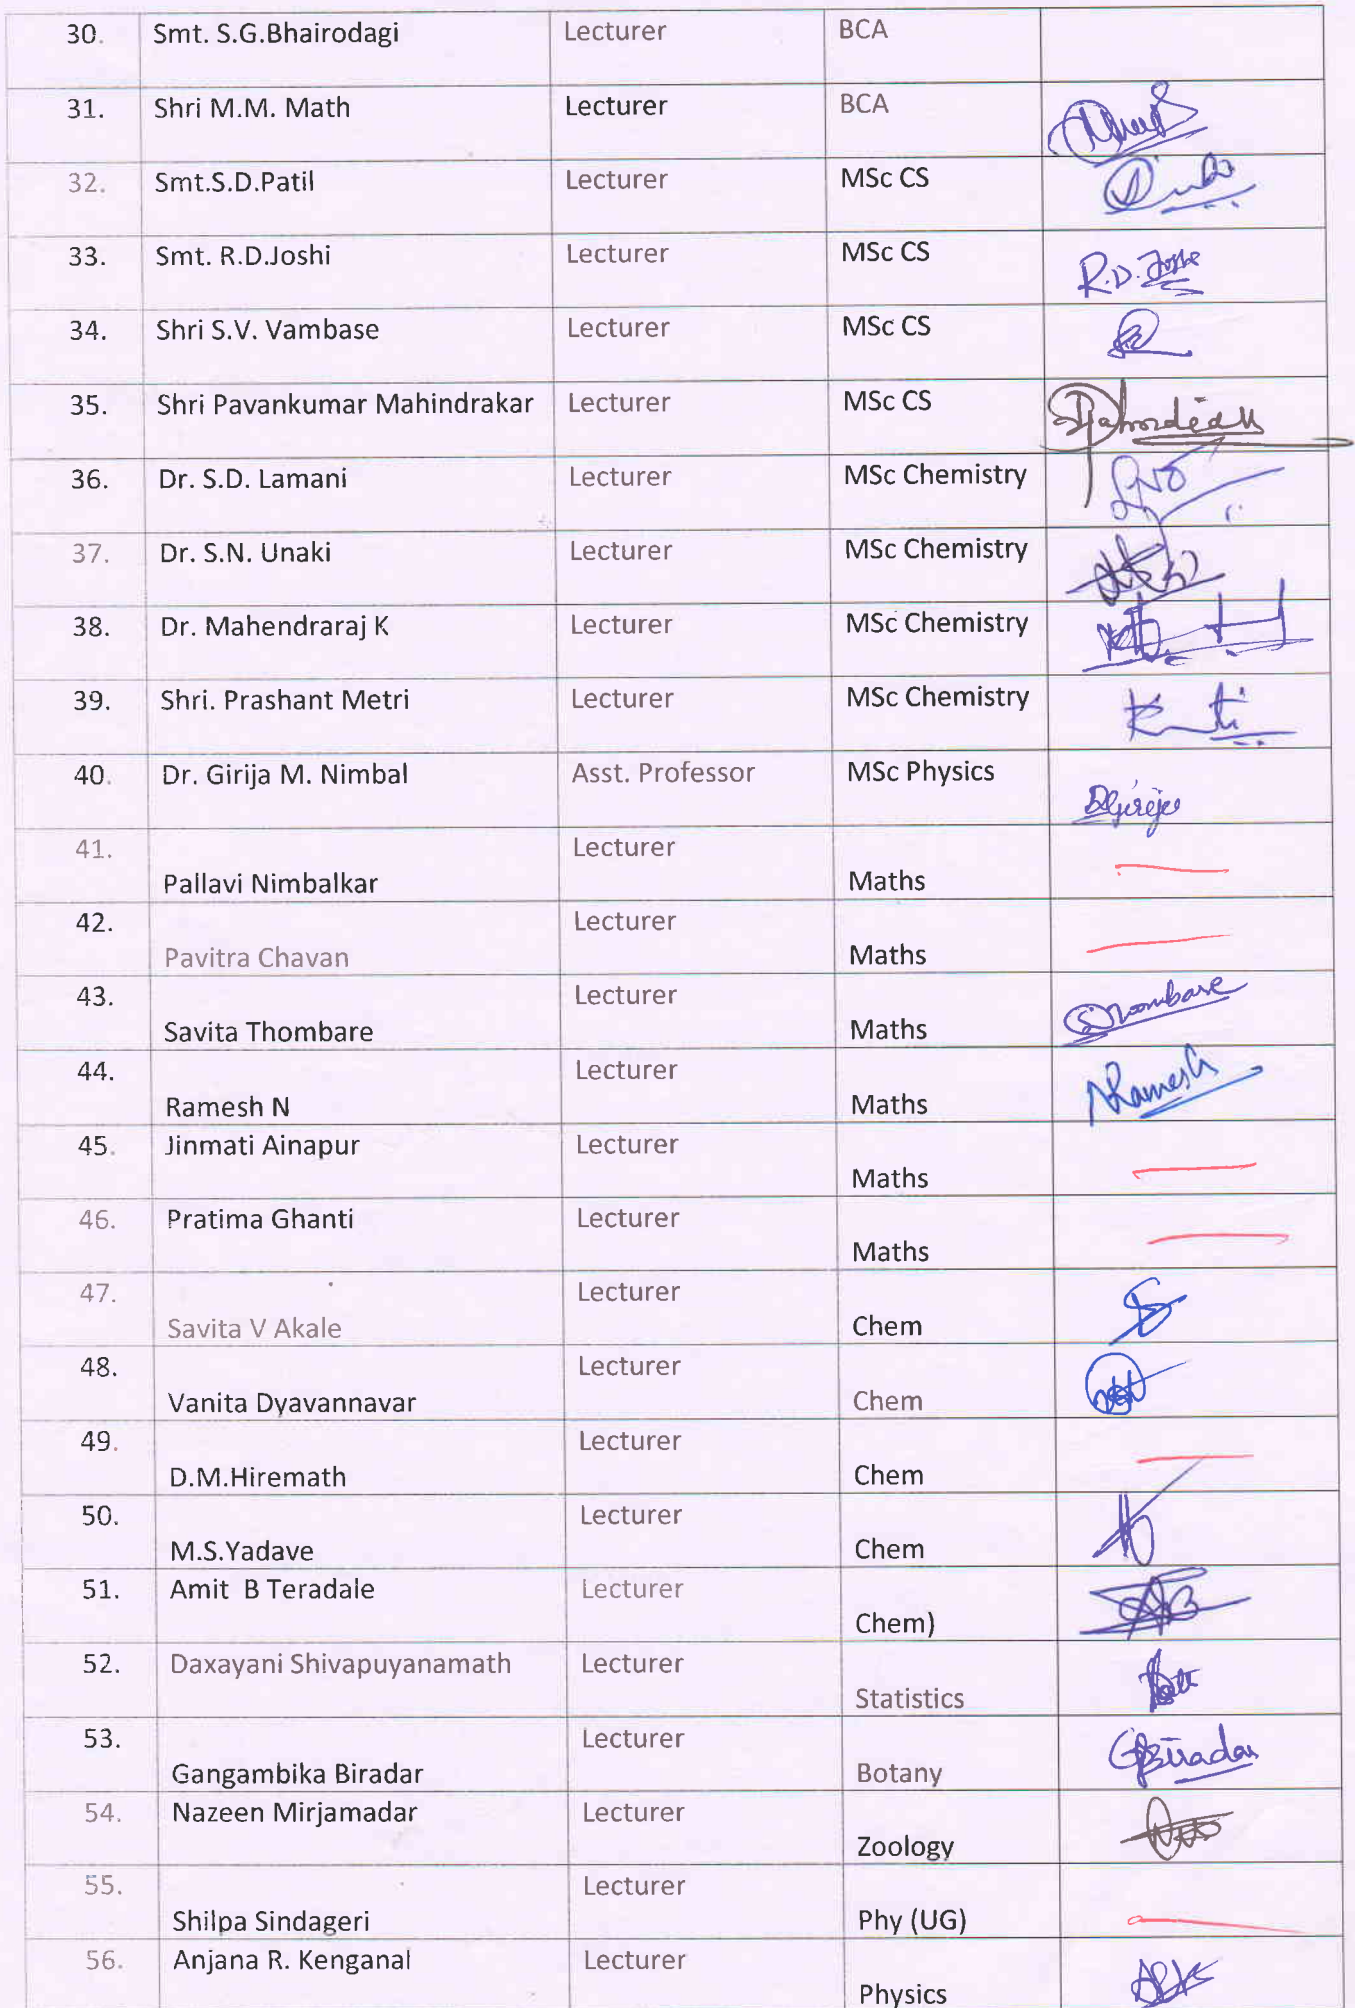 30. Smt. S.G.Bhairodagi Lecturer BCA
31. Shri M.M. Math Lecturer BCA
32. Smt.S.D.Patil Lecturer MSc CS
33. Smt. R.D.Joshi Lecturer MSc CS R.D.Joshi
34. Shri S.V. Vambase Lecturer MSc CS
35. Shri Pavankumar Mahindrakar Lecturer MSc CS
36. Dr. S.D. Lamani Lecturer MSc Chemistry
37. Dr. S.N. Unaki Lecturer MSc Chemistry
38. Dr. Mahendraraj K Lecturer MSc Chemistry
39. Shri. Prashant Metri Lecturer MSc Chemistry
40. Dr. Girija M. Nimbal Asst. Professor MSc Physics
41. Pallavi Nimbalkar Lecturer Maths
42. Pavitra Chavan Lecturer Maths
43. Savita Thombare Lecturer Maths
44. Ramesh N Lecturer Maths NRamesh
45. Jinmati Ainapur Lecturer Maths
46. Pratima Ghanti Lecturer Maths
47. Savita V Akale Lecturer Chem
48. Vanita Dyavannavar Lecturer Chem
49. D.M.Hiremath Lecturer Chem
50. M.S.Yadave Lecturer Chem
51. Amit B Teradale Lecturer Chem)
52. Daxayani Shivapuyanamath Lecturer Statistics
53. Gangambika Biradar Lecturer Botany GBBiradar
54. Nazeen Mirjamadar Lecturer Zoology
55. Shilpa Sindageri Lecturer Phy (UG)
56. Anjana R. Kenganal Lecturer Physics